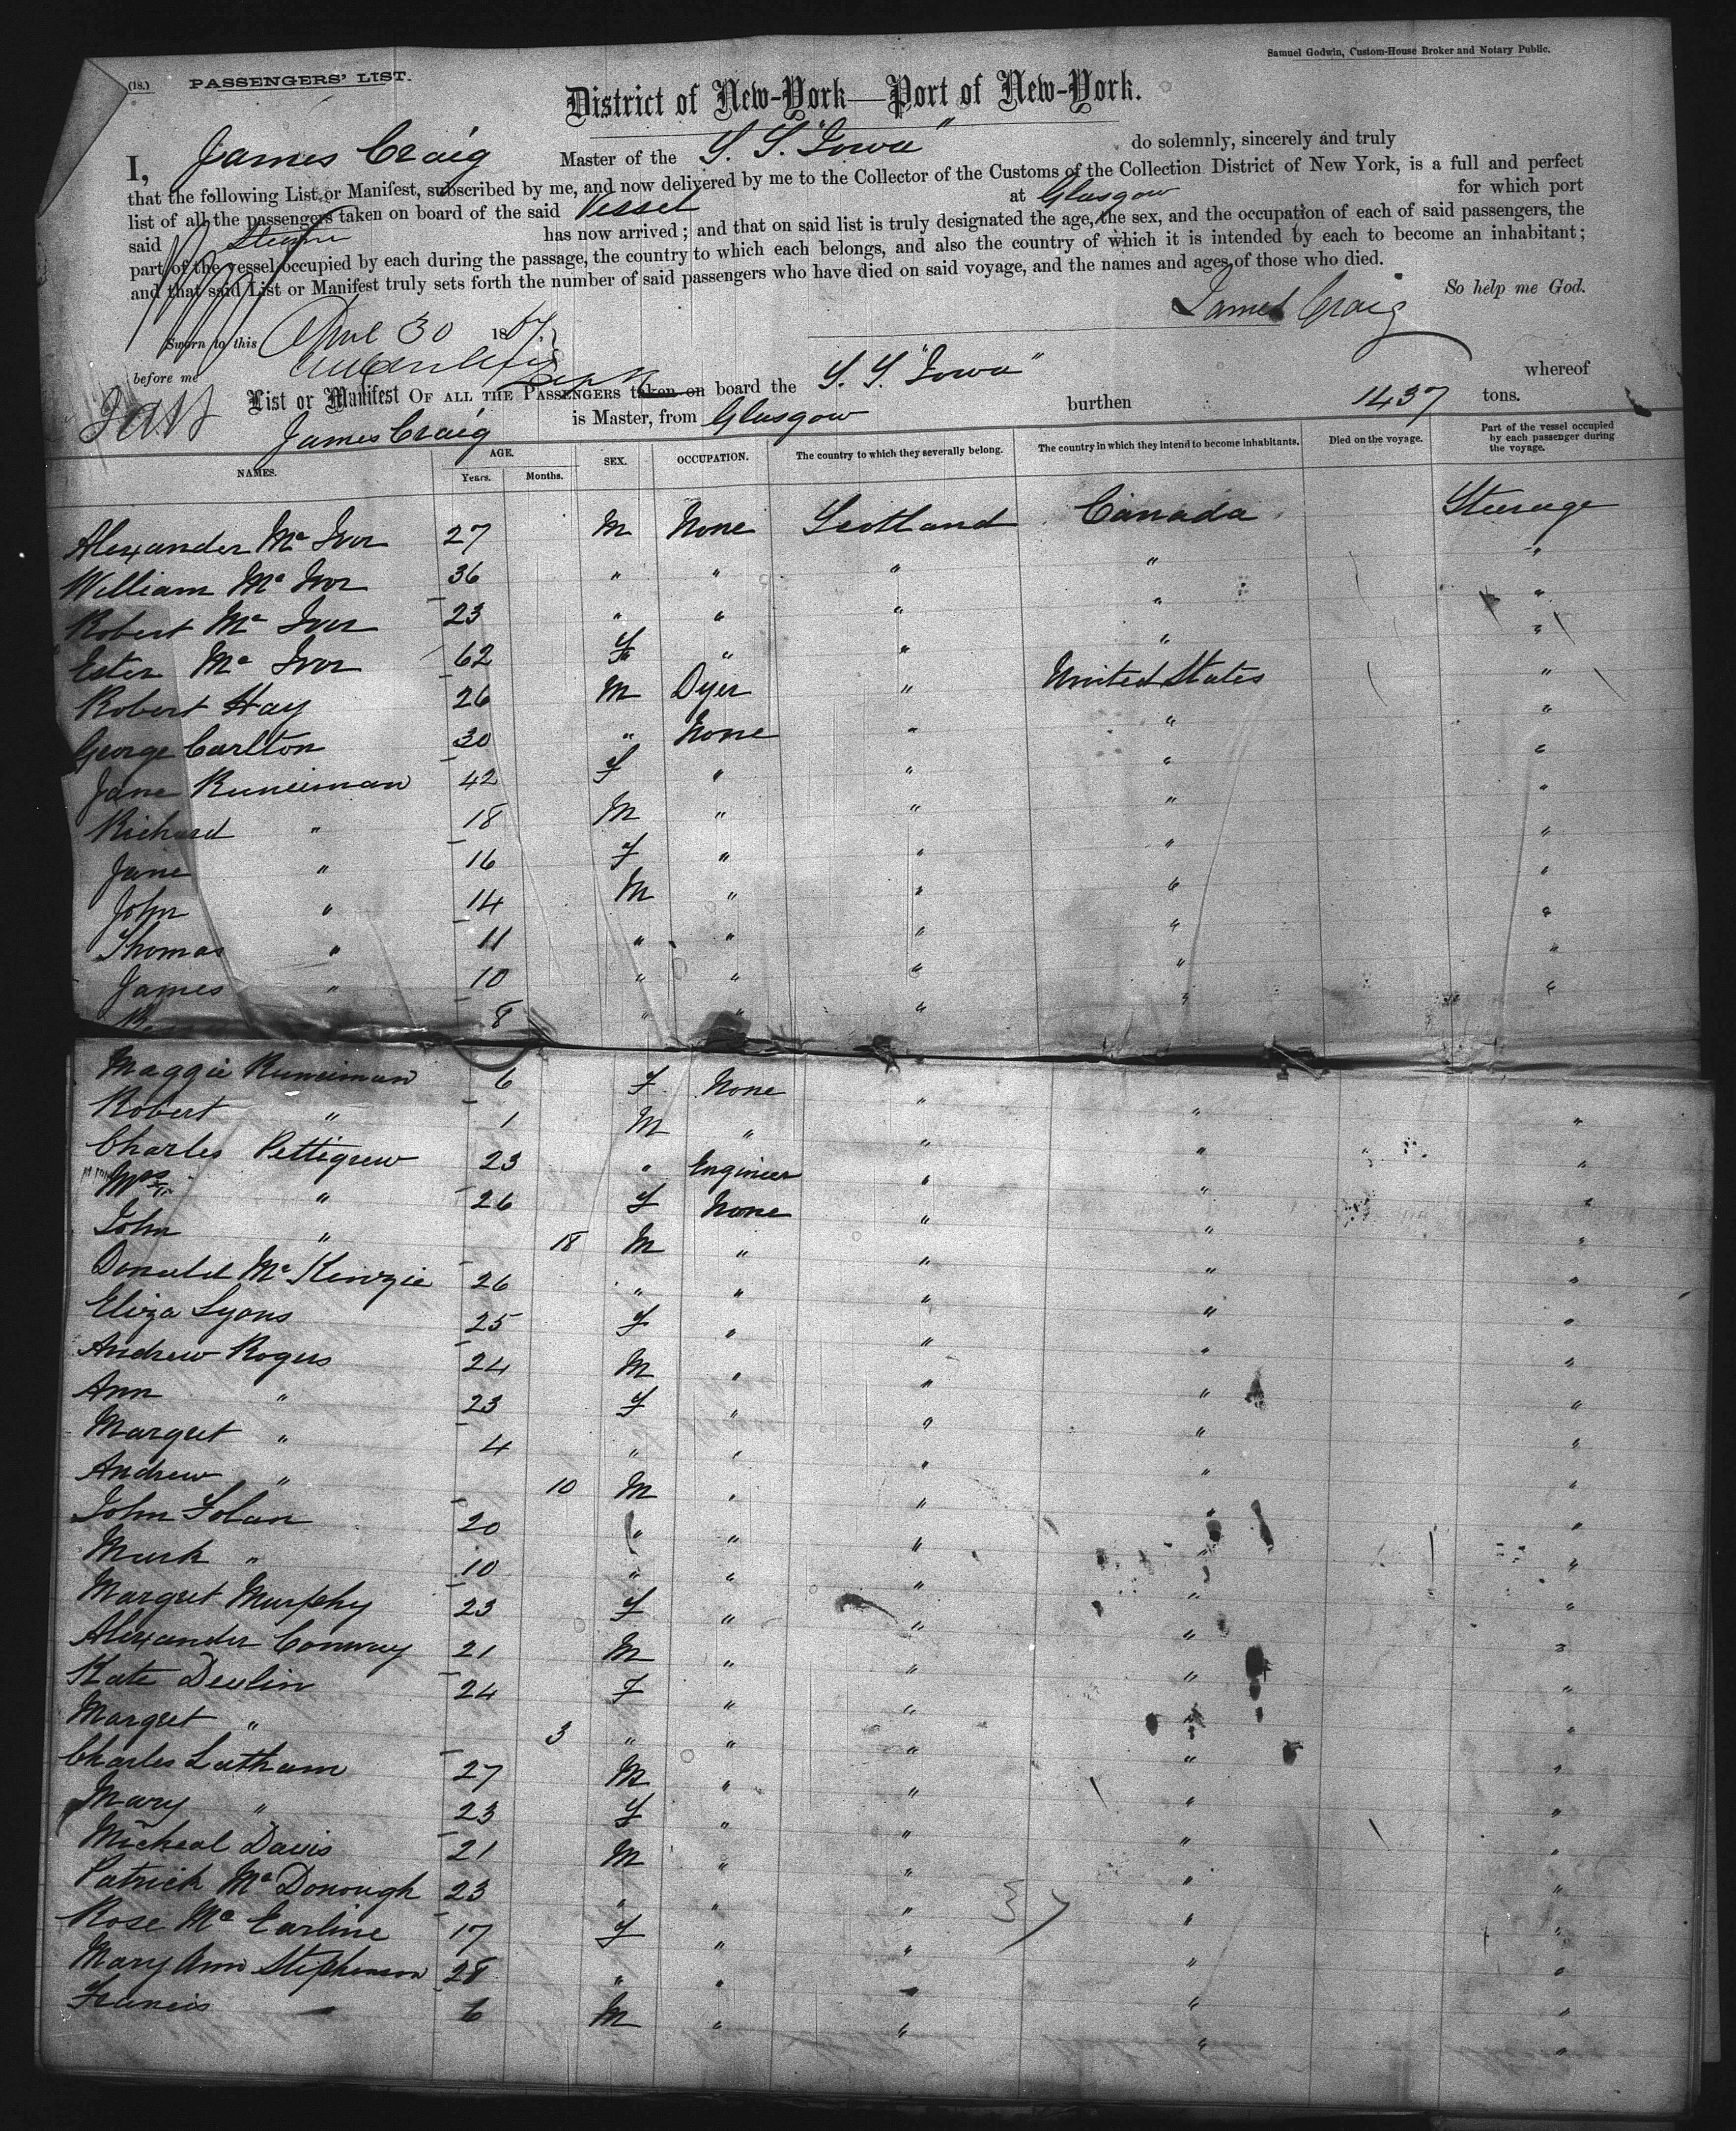 Samuel Godwin, Custom-House Broker and Notary Public.
(18.) PASSENGERS' LIST.
District of New-York—Port of New-York.
I, James Craig Master of the S. S. "Iowa" do solemnly, sincerely and truly
that the following List or Manifest, subscribed by me, and now delivered by me to the Collector of the Customs of the Collection District of New York, is a full and perfect
list of all the passengers taken on board of the said Vessel at Glasgow for which port
said has now arrived; and that on said list is truly designated the age, the sex, and the occupation of each of said passengers, the
part of the vessel occupied by each during the passage, the country to which each belongs, and also the country of which it is intended by each to become an inhabitant;
and that said List or Manifest truly sets forth the number of said passengers who have died on said voyage, and the names and ages of those who died.
So help me God.
James Craig
Sworn to this April 30 1867
before me
List or Manifest OF ALL THE PASSENGERS taken on board the S. S. "Iowa" whereof
James Craig is Master, from Glasgow burthen 1437 tons.
NAMES. AGE. Years. Months. SEX. OCCUPATION. The country to which they severally belong. The country in which they intend to become inhabitants. Died on the voyage. Part of the vessel occupied by each passenger during the voyage.
Alexander Mc Ivor 27 M None Scotland Canada Steerage
William Mc Ivor 36 " " " " "
Robert Mc Ivor 23 " " " " "
Ester Mc Ivor 62 F " " " "
Robert Hay 26 M Dyer " United States "
George Carlton 30 " None " " "
Jane Runciman 42 F " " " "
Richard " 18 M " " " "
Jane " 16 F " " " "
John " 14 M " " " "
Thomas " 11 " " " " "
James " 10 " " " " "
8 " " " " "
Maggie Runciman 6 F None " " "
Robert " 1 M " " " "
Charles Pettigrew 23 " Engineer " " "
Mrs " 26 F None " " "
John " 18 M " " " "
Donald Mc Kenzie 26 " " " " "
Eliza Lyons 25 F " " " "
Andrew Rogers 24 M " " " "
Ann " 23 F " " " "
Margret " 4 " " " " "
Andrew " 10 M " " " "
John Folan 20 " " " " "
Mark " 10 " " " " "
Margret Murphy 23 F " " " "
Alexander Conway 21 M " " " "
Kate Devlin 24 F " " " "
Margret " 3 " " " " "
Charles Latham 27 M " " " "
Mary " 23 F " " " "
Micheal Davis 21 M " " " "
Patrick Mc Donough 23 " " " " "
Rose Mc Earline 17 F " " " "
Mary Ann Stephenson 28 " " " " "
Francis " 6 M " " " "